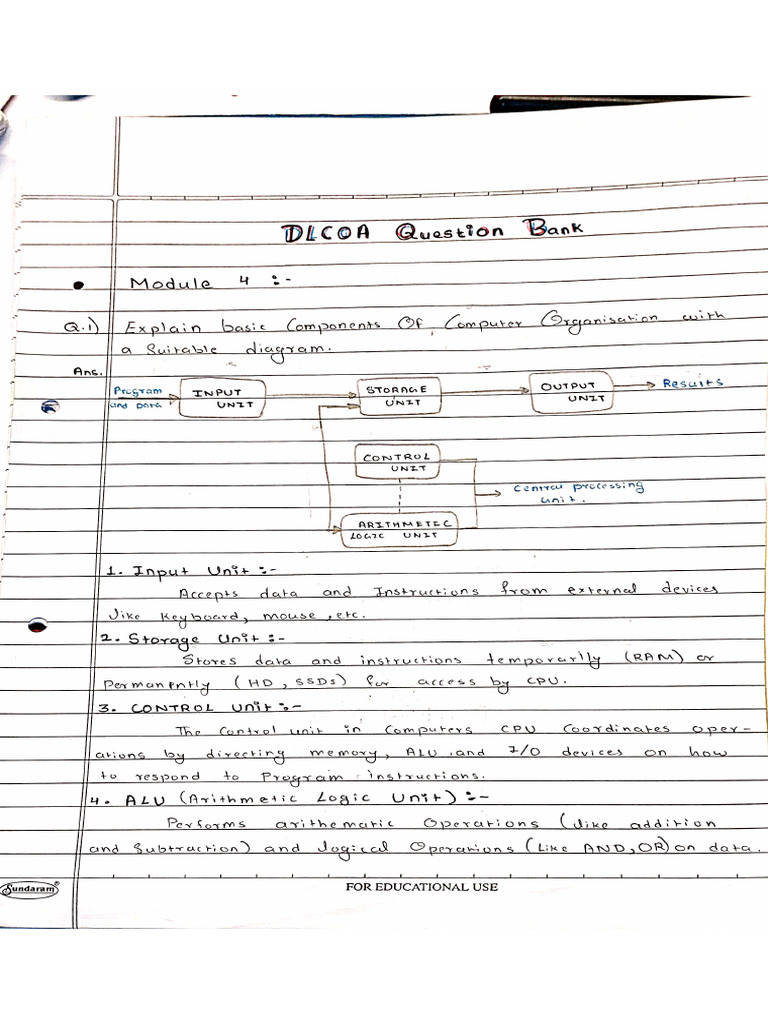 DLCOA Question Bank
• Module 4 :-
Q.1) Explain basic Components Of Computer Organisation with
a Suitable diagram.
Ans.
Program and Data
INPUT UNIT
STORAGE UNIT
OUTPUT UNIT
Results
CONTROL UNIT
Central processing unit.
ARITHMETEC LOGIC UNIT
1. Input Unit :-
Accepts data and Instructions from external devices
like keyboard, mouse, etc.
2. Storage Unit :-
Stores data and instructions temporarily (RAM) or
Permanently (HD, SSDs) for access by CPU.
3. CONTROL Unit :-
The Control unit in Computers CPU Coordinates oper-
ations by directing memory, ALU and I/O devices on how
to respond to Program instructions.
4. ALU (Arithmetic Logic Unit) :-
Performs arithematic Operations (like addition
and Subtraction) and logical Operations (Like AND, OR) on data.
Sundaram®
FOR EDUCATIONAL USE